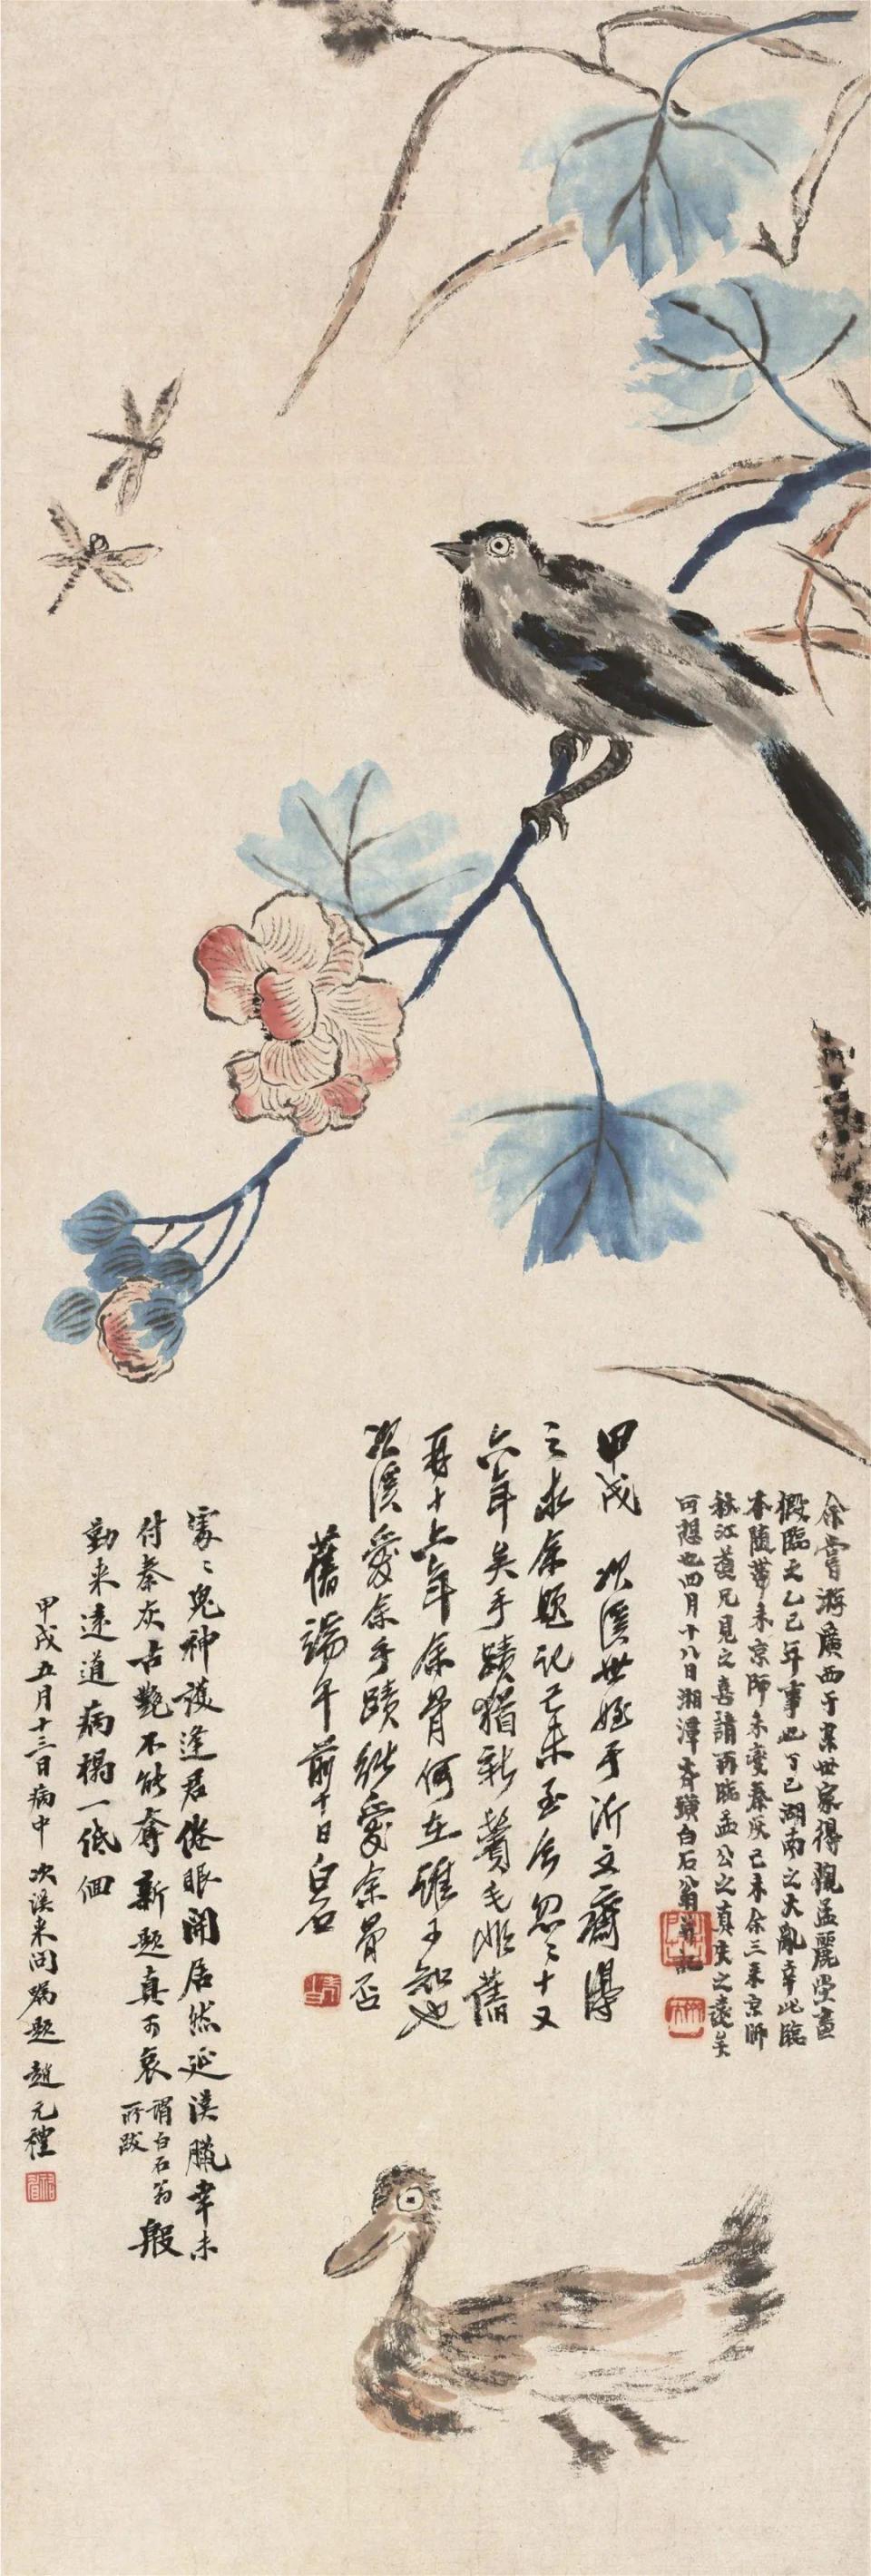 余嘗游廣西于某世家得觀孟麗堂畫
假臨之乙巳年事也丁巳湖南之大亂幸此臨
本隨帶來京師未變秦灰己未余三來京師
秋江道兄見之喜請再臨孟公之真
可想也四月十八日湘潭齊璜白石翁并記
甲戌 次溪世姪于沂文齋得
之求余題記己未至今忽忽十又
六年矣手蹟猶新鬢毛非舊
再十六年余骨何在誰可知也
次溪愛余手蹟能愛余骨否
舊端午前十日白石
家家鬼神護逢君倦眼開居然延漢臘幸未
付秦灰古艷不能奪新題真可哀謂白石翁所跋 殷
勤來遠道病榻一低佪
甲戌五月十三日病中次溪來問囑題趙元禮